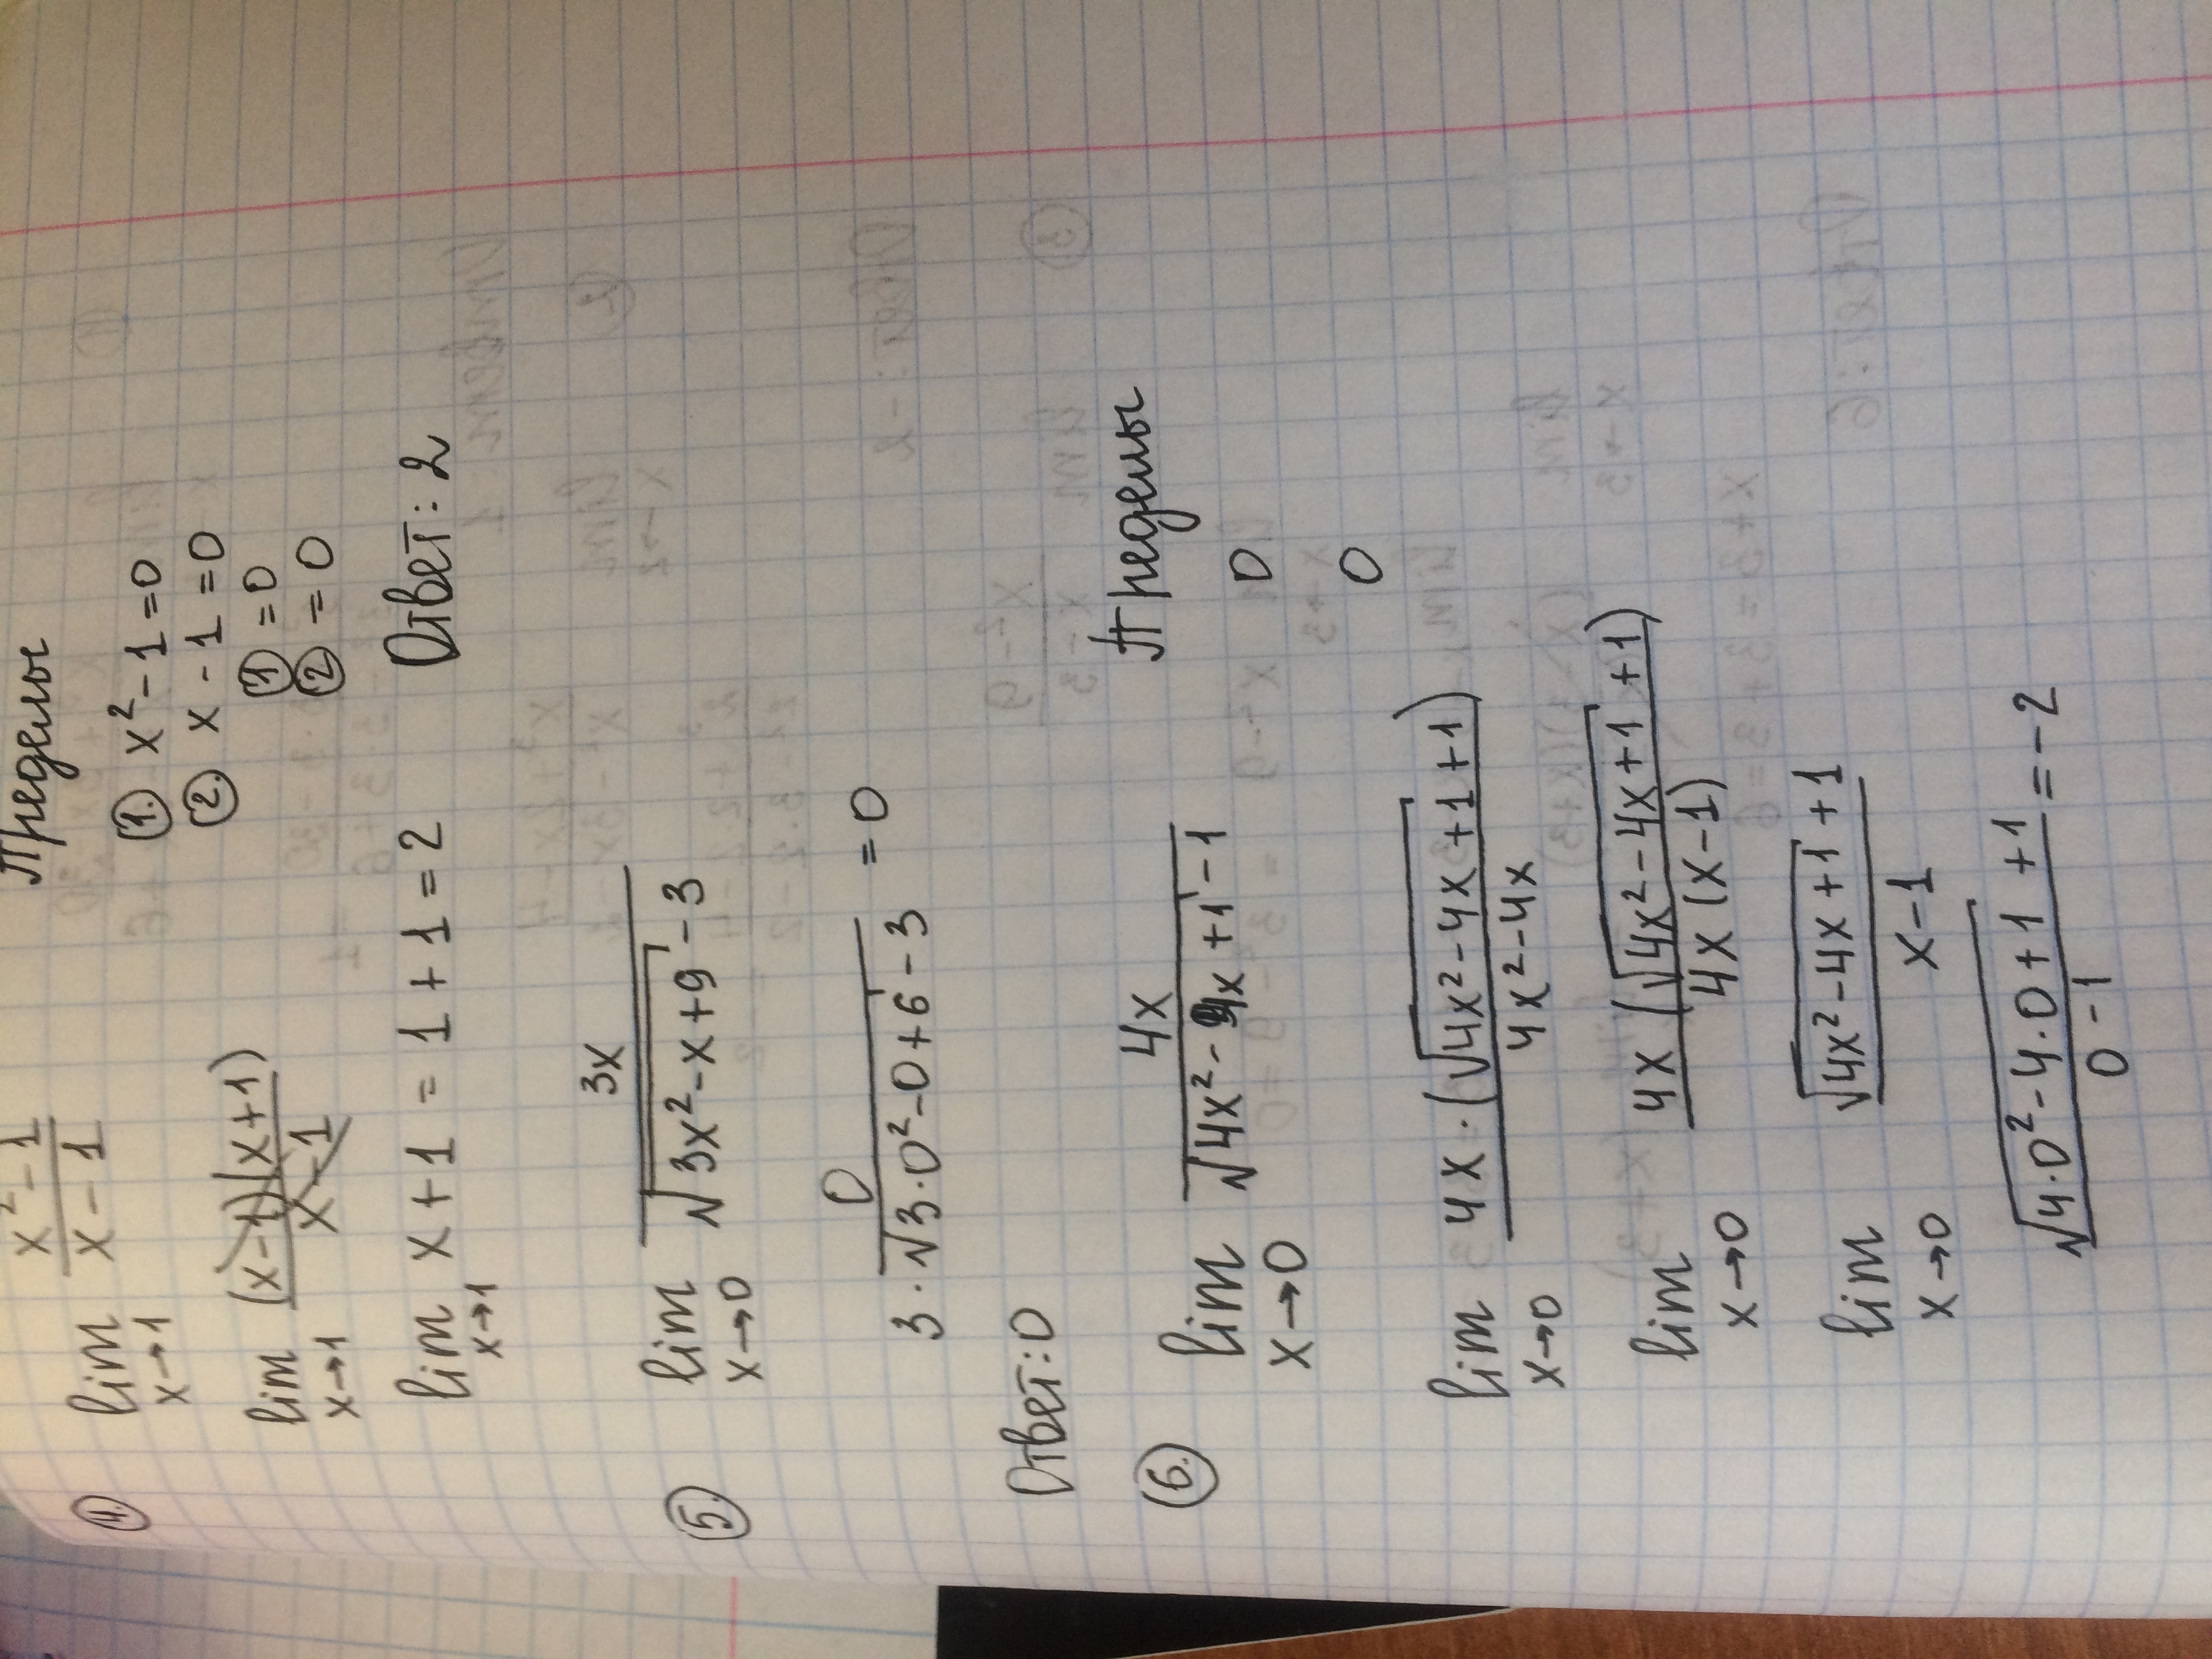 Пределы
④ lim x→1 (x² - 1)/(x - 1)
①. x² - 1 = 0
②. x - 1 = 0
① = 0
② = 0
lim x→1 (x-1)(x+1)/(x-1)
lim x→1 x+1 = 1+1 = 2
Ответ: 2
⑤ lim x→0 3x/(√(3x² - x + 9) - 3)
3 · 0/(√(3·0² - 0 + 6) - 3) = 0
Ответ: 0
Пределы
⑥. lim x→0 4x/(√(4x² - 4x + 1) - 1)
0
0
lim x→0 4x · (√(4x² - 4x + 1) + 1)/(4x² - 4x)
lim x→0 4x (√(4x² - 4x + 1) + 1)/(4x (x - 1))
lim x→0 (√(4x² - 4x + 1) + 1)/(x - 1)
(√(4·0² - 4·0 + 1) + 1)/(0 - 1) = -2